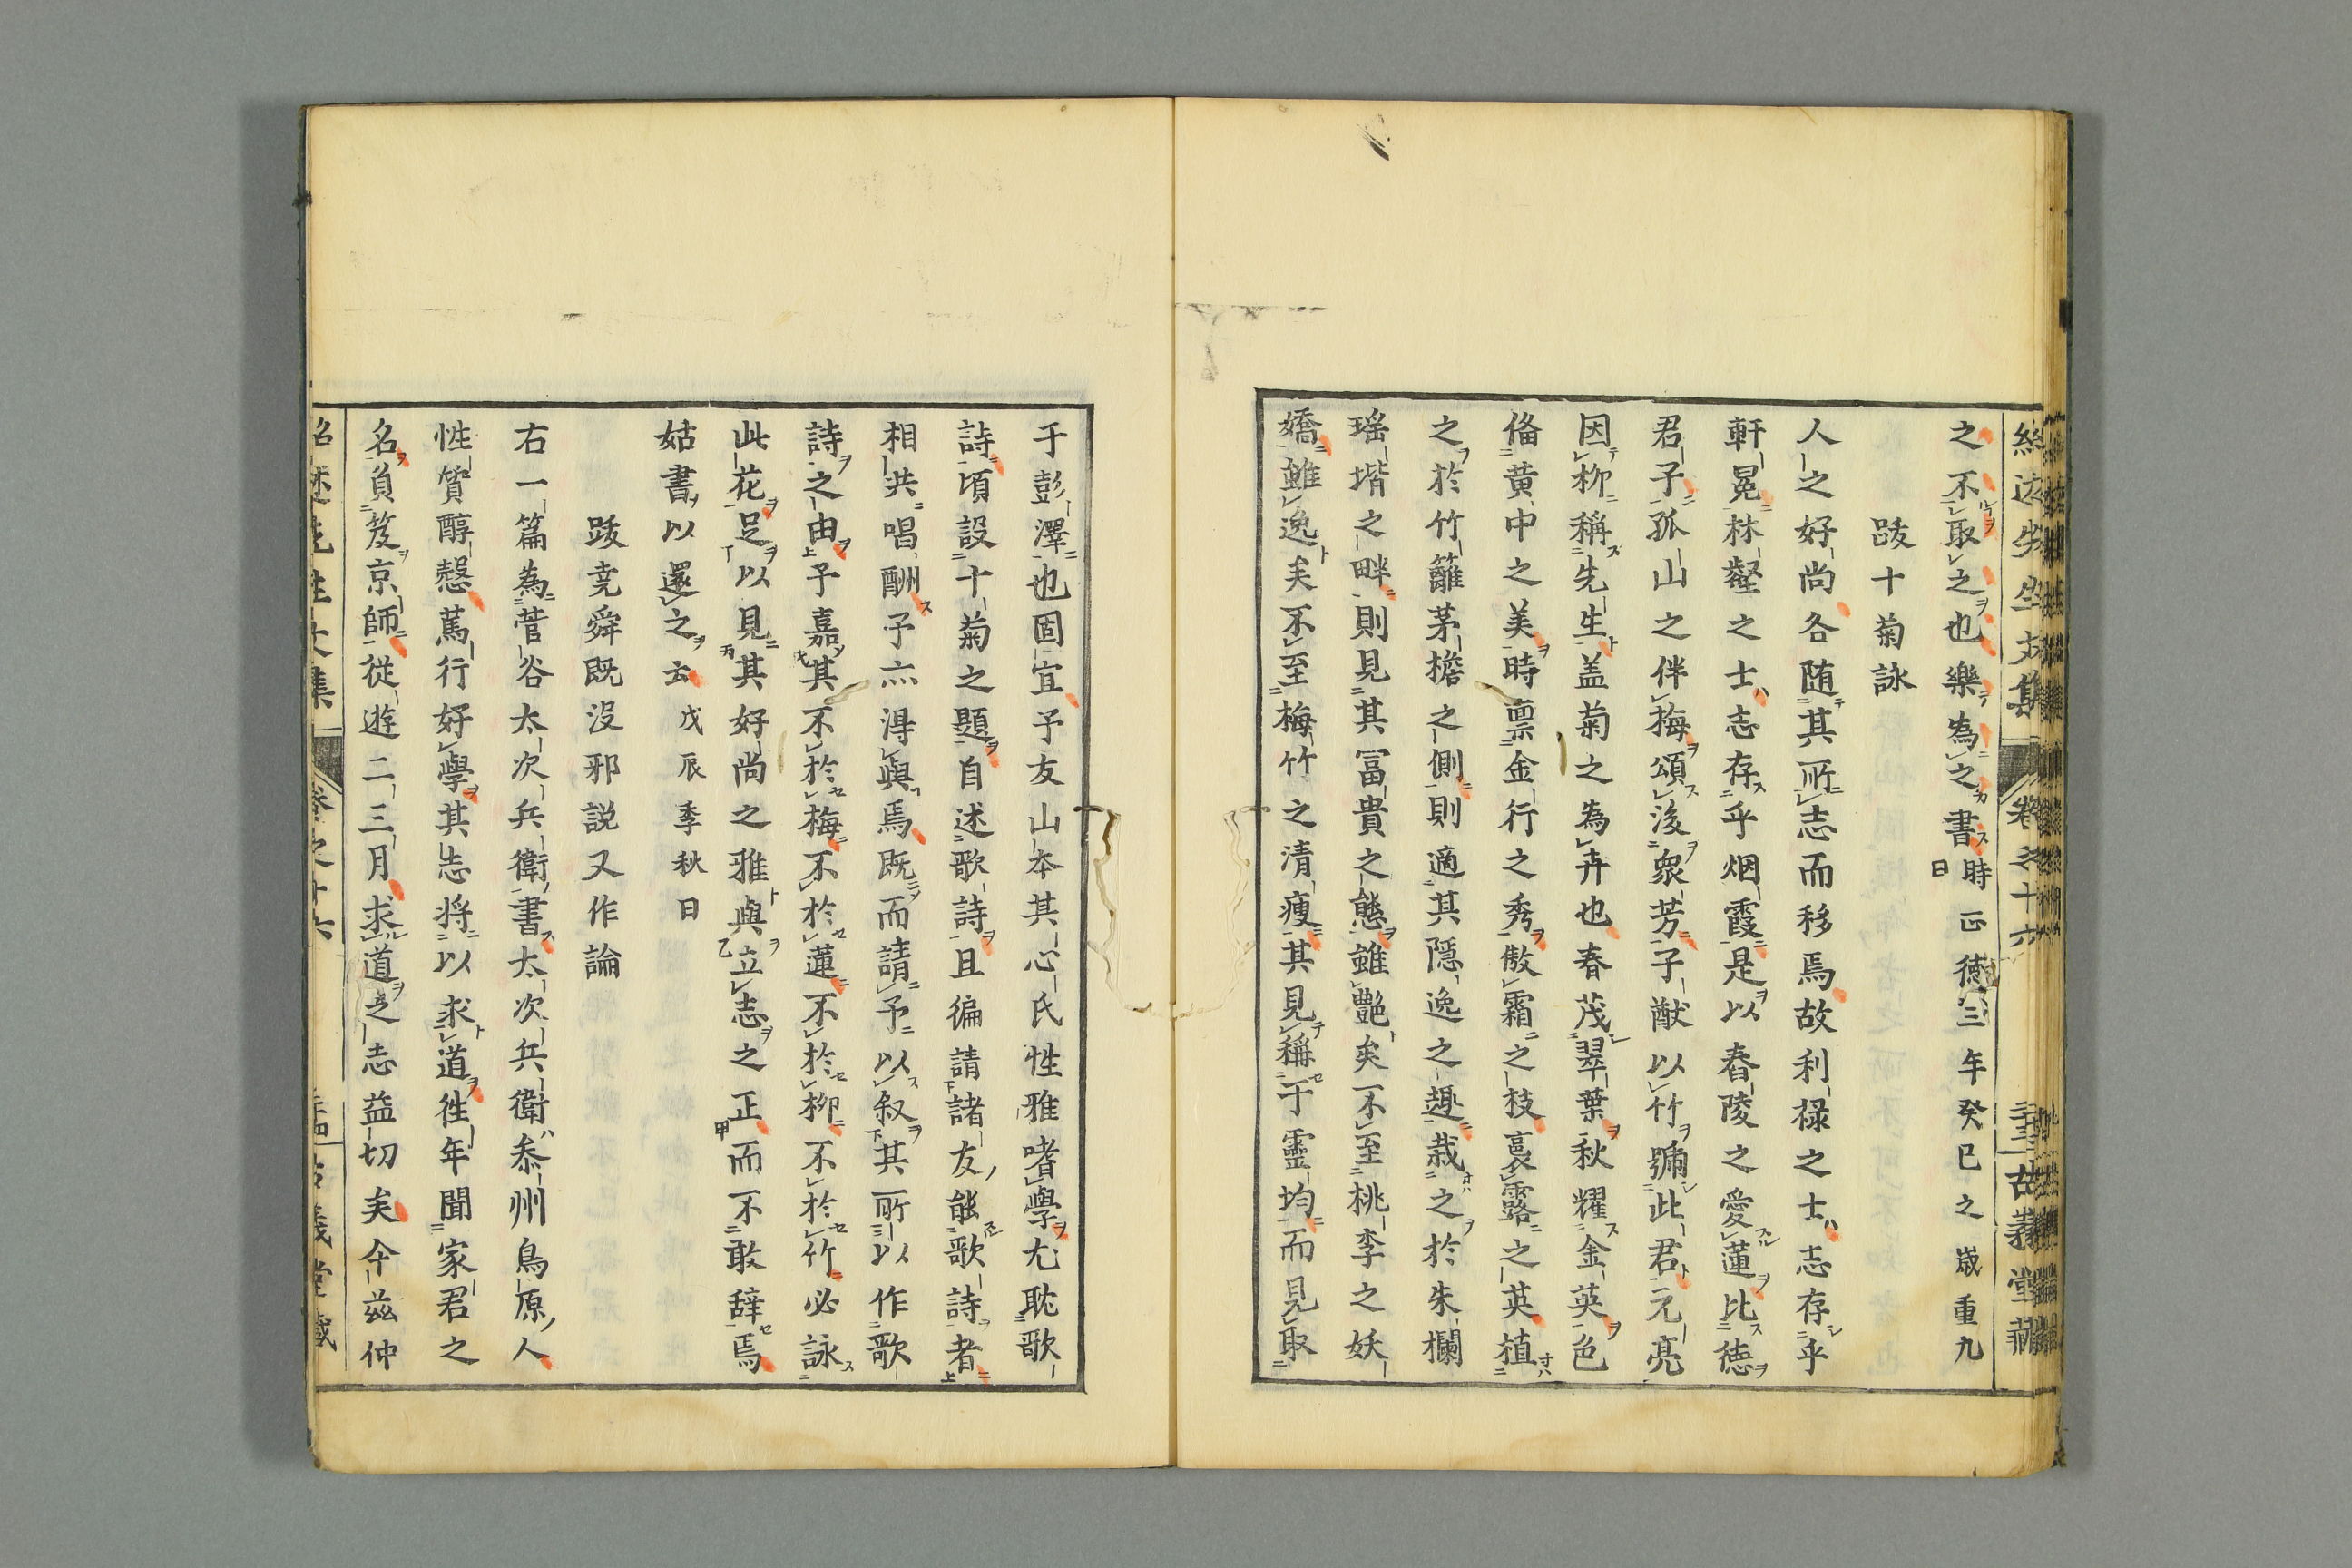 紹述先生文集 卷之十六 三十三 古義堂藏
之不取之也樂為之書時正德三年癸巳之歲重九
日
跋十菊詠
人之好尚各随其所志而移焉故利禄之士志存乎
軒冕林壑之士志存乎烟霞是以舂陵之愛蓮比徳
君子孤山之伴梅頌後衆芳子猷以竹號此君元亮
因柳稱先生盖菊之為卉也春茂翠葉秋耀金英色
偹黄中之美時禀金行之秀傲霜之枝裛露之英植
之於竹籬茅檐之側則適其隠逸之趣栽之於朱欄
瑶堦之畔則見其冨貴之態雖艷矣不至桃李之妖
嬌雖逸矣不至梅竹之清瘦其見稱于靈均而見取
于彭澤也固宜予友山本其心氏性雅嗜學尤耽歌
詩頃設十菊之題自述歌詩且徧請諸友能歌詩者
相共唱酬予亦得與焉既而請予以叙其所以作歌
詩之由予嘉其不於梅不於蓮不於柳不於竹必詠
此花足以見其好尚之雅與立志之正而不敢辞焉
姑書以還之云 戊辰季秋日
跋尭舜既没邪説又作論
右一篇為菅谷太次兵衛書太次兵衛参州鳥原人
性質醇慤篤行好學其志将以求道徃年聞家君之
名負笈京師從遊二三月求道之志益切矣今兹仲
紹述先生文集 卷之十六 古義堂藏